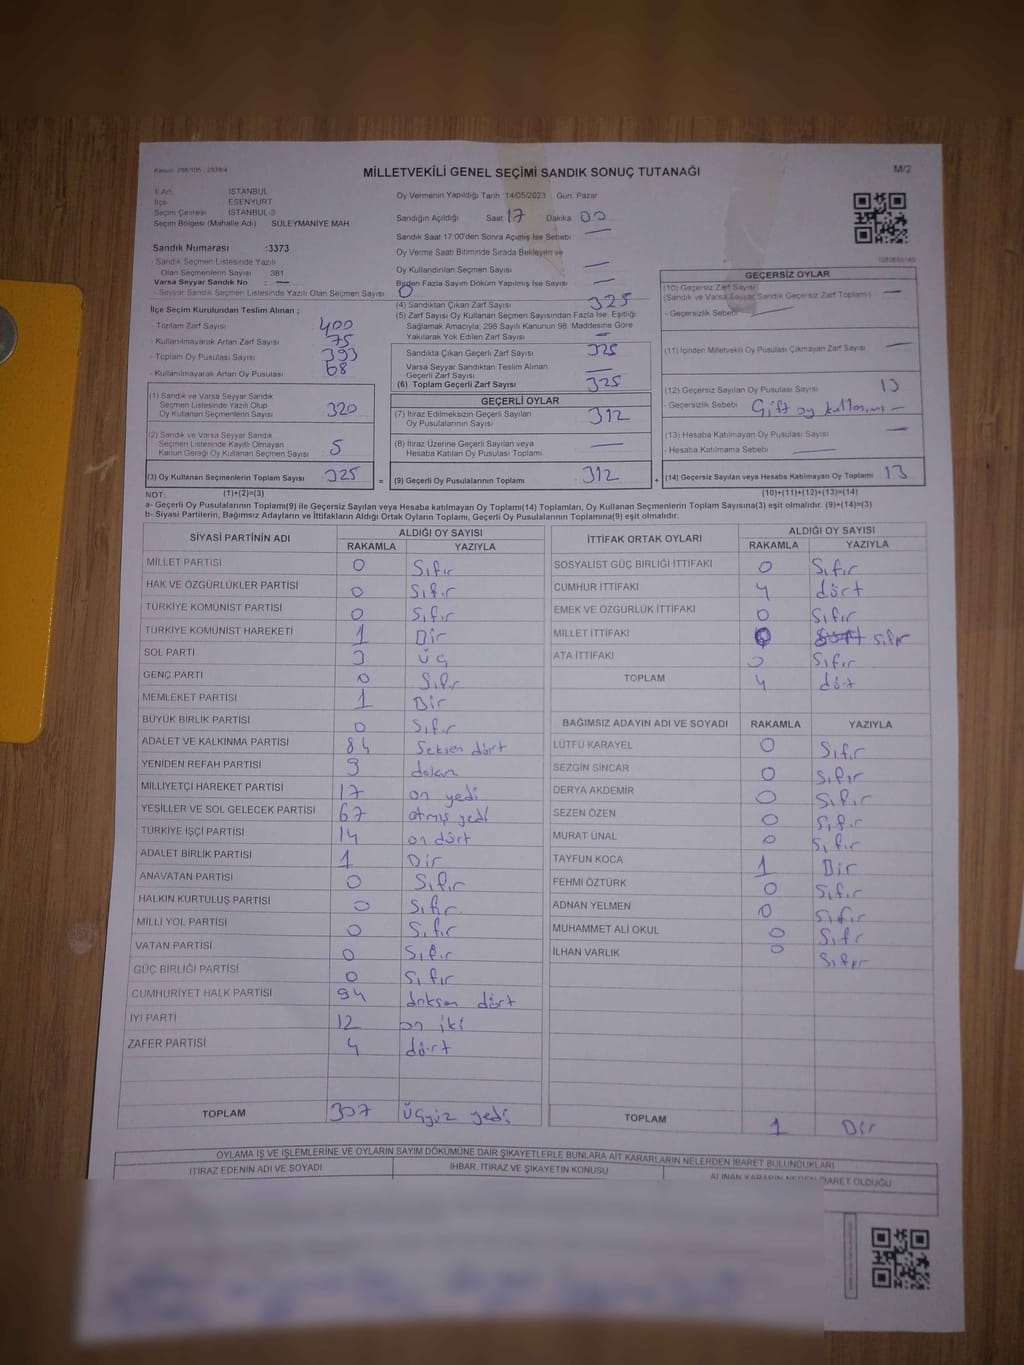 MİLLETVEKİLİ GENEL SEÇİMİ SANDIK SONUÇ TUTANAĞI
M/2
İl Adı: İSTANBUL
İlçe ESENYURT
Seçim Çevresi İSTANBUL-3
Seçim Bölgesi (Mahalle Adı) SÜLEYMANİYE MAH.
Sandık Numarası :3373
Sandık Seçmen Listesinde Yazılı
Olan Seçmenlerin Sayısı : 381
Varsa Seyyar Sandık No : —
- Seyyar Sandık Seçmen Listesinde Yazılı Olan Seçmen Sayısı : 0
İlçe Seçim Kurulundan Teslim Alınan ;
- Toplam Zarf Sayısı 400
- Kullanılmayarak Artan Zarf Sayısı 75
- Toplam Oy Pusulası Sayısı 393
- Kullanılmayarak Artan Oy Pusulası 68
(1) Sandık ve Varsa Seyyar Sandık
Seçmen Listesinde Yazılı Olup
Oy Kullanan Seçmenlerin Sayısı 320
(2) Sandık ve Varsa Seyyar Sandık
Seçmen Listesinde Kayıtlı Olmayan
Kanun Gereği Oy Kullanan Seçmen Sayısı 5
(3) Oy Kullanan Seçmenlerin Toplam Sayısı 325 =
Oy Vermenin Yapıldığı Tarih : 14/05/2023 Gün: Pazar
Sandığın Açıldığı Saat 17 Dakika 00
Sandık Saat 17:00'den Sonra Açılmış İse Sebebi : —
Oy Verme Saati Bitiminde Sırada Bekleyen ve
Oy Kullandırılan Seçmen Sayısı —
Birden Fazla Sayım Döküm Yapılmış İse Sayısı : —
(4) Sandıktan Çıkan Zarf Sayısı 325
(5) Zarf Sayısı Oy Kullanan Seçmen Sayısından Fazla İse, Eşitliği
Sağlamak Amacıyla, 298 Sayılı Kanunun 98. Maddesine Göre
Yakılarak Yok Edilen Zarf Sayısı —
Sandıkta Çıkan Geçerli Zarf Sayısı 325
Varsa Seyyar Sandıktan Teslim Alınan
Geçerli Zarf Sayısı —
(6) Toplam Geçerli Zarf Sayısı 325
GEÇERLİ OYLAR
(7) İtiraz Edilmeksizin Geçerli Sayılan
Oy Pusulalarının Sayısı 312
(8) İtiraz Üzerine Geçerli Sayılan veya
Hesaba Katılan Oy Pusulası Toplamı —
(9) Geçerli Oy Pusulalarının Toplamı 312 +
GEÇERSİZ OYLAR
(10) Geçersiz Zarf Sayısı
(Sandık ve Varsa Seyyar Sandık Geçersiz Zarf Toplamı) —
- Geçersizlik Sebebi —
(11) İçinden Milletvekili Oy Pusulası Çıkmayan Zarf Sayısı —
(12) Geçersiz Sayılan Oy Pusulası Sayısı 13
- Geçersizlik Sebebi Çift oy kullanımı —
(13) Hesaba Katılmayan Oy Pusulası Sayısı —
- Hesaba Katılmama Sebebi —
(14) Geçersiz Sayılan veya Hesaba Katılmayan Oy Toplamı 13
NOT: (1)+(2)=(3) (10)+(11)+(12)+(13)=(14)
a- Geçerli Oy Pusulalarının Toplamı(9) ile Geçersiz Sayılan veya Hesaba katılmayan Oy Toplamı(14) Toplamları, Oy Kullanan Seçmenlerin Toplam Sayısına(3) eşit olmalıdır. (9)+(14)=(3)
b- Siyasi Partilerin, Bağımsız Adayların ve İttifakların Aldığı Ortak Oyların Toplamı, Geçerli Oy Pusulalarının Toplamına(9) eşit olmalıdır.
SİYASİ PARTİNİN ADI ALDIĞI OY SAYISI
RAKAMLA YAZIYLA
MİLLET PARTİSİ 0 Sıfır
HAK VE ÖZGÜRLÜKLER PARTİSİ 0 Sıfır
TÜRKİYE KOMÜNİST PARTİSİ 0 Sıfır
TÜRKİYE KOMÜNİST HAREKETİ 1 Bir
SOL PARTİ 3 Üç
GENÇ PARTİ 0 Sıfır
MEMLEKET PARTİSİ 1 Bir
BÜYÜK BİRLİK PARTİSİ 0 Sıfır
ADALET VE KALKINMA PARTİSİ 84 Seksen dört
YENİDEN REFAH PARTİSİ 9 dokuz
MİLLİYETÇİ HAREKET PARTİSİ 17 on yedi
YEŞİLLER VE SOL GELECEK PARTİSİ 67 atmış yedi
TÜRKİYE İŞÇİ PARTİSİ 14 on dört
ADALET BİRLİK PARTİSİ 1 Bir
ANAVATAN PARTİSİ 0 Sıfır
HALKIN KURTULUŞ PARTİSİ 0 Sıfır
MİLLİ YOL PARTİSİ 0 Sıfır
VATAN PARTİSİ 0 Sıfır
GÜÇ BİRLİĞİ PARTİSİ 0 Sıfır
CUMHURİYET HALK PARTİSİ 94 doksan dört
İYİ PARTİ 12 on iki
ZAFER PARTİSİ 4 dört
TOPLAM 307 Üçyüz yedi
İTTİFAK ORTAK OYLARI ALDIĞI OY SAYISI
RAKAMLA YAZIYLA
SOSYALİST GÜÇ BİRLİĞİ İTTİFAKI 0 Sıfır
CUMHUR İTTİFAKI 4 dört
EMEK VE ÖZGÜRLÜK İTTİFAKI 0 Sıfır
MİLLET İTTİFAKI 0 sıfır
ATA İTTİFAKI 0 Sıfır
TOPLAM 4 dört
BAĞIMSIZ ADAYIN ADI VE SOYADI RAKAMLA YAZIYLA
LÜTFÜ KARAYEL 0 Sıfır
SEZGİN SİNCAR 0 Sıfır
DERYA AKDEMİR 0 Sıfır
SEZEN ÖZEN 0 Sıfır
MURAT ÜNAL 0 Sıfır
TAYFUN KOCA 1 Bir
FEHMİ ÖZTÜRK 0 Sıfır
ADNAN YELMEN 0 Sıfır
MUHAMMET ALİ OKUL 0 Sıfır
İLHAN VARLIK 0 Sıfır
TOPLAM 1 Bir
OYLAMA İŞ VE İŞLEMLERİNE VE OYLARIN SAYIM DÖKÜMÜNE DAİR ŞİKAYETLERLE BUNLARA AİT KARARLARIN NELERDEN İBARET BULUNDUKLARI
İTİRAZ EDENİN ADI VE SOYADI İHBAR, İTİRAZ VE ŞİKAYETİN KONUSU ALINAN KARARIN NEDEN İBARET OLDUĞU